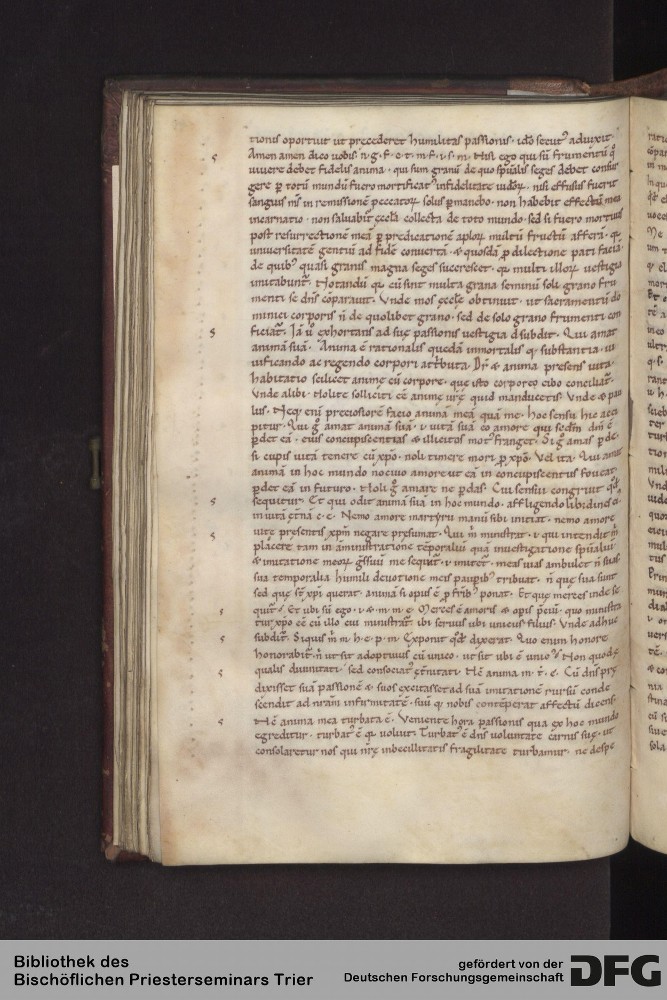 tionis oportuit ut precederet humilitas passionis. ideo secut᷒ adiunxit.
Amen amen dico uobis. n. g. f. e. t. m. f. i. s. m. Nisi ego qui sū frumentū q̊
uiuere debet fidelis anima. qui sum granū de quo sp̄ualis seges debet consur
gere ꝑ totū mundū fuero mortificat᷒ infidelitate iudeoꝝ. nisi effusus fuerit
sanguis m̄s in remissionem peccatoꝝ solus ꝑmanebo. non habebit effectū mea
incarnatio. non saluabit᷒ ęccl̄a collecta de toto mundo. sed si fuero mortuus
post resurrectionē meā ꝑ predicationē aplōꝝ multū fructū afferā. q̨
uniuersitatē gentiū ad fidē conuertā. & quosdā ꝓ dilectione pati faciā
de quib᷒ quasi granis magna seges succrescet. q̨ multi illoꝝ uestigia
imitabunt᷒. Notandū q̨ cū sint multa grana seminū soli grano fru
menti se dn̄s cōparauit. Vnde mos ęccl̄ę obtinuit. ut sacramentū do
minici corporis n̄ de quolibet grano. sed de solo grano frumenti con
ficiat᷒. Iā u͛o exhortans ad suę passionis uestigia d̄ subdit. Qui amat
animā suā. Anima ē rationalis quedā inmortalis q̨ substantia. ui
uificando ac regendo corpori attributa. Dr̄ & anima presens uita
habitatio scilicet animę cū corpore. quę isto corporeo cibo conciliat᷒.
Vnde alibi. Nolite solliciti ēē animę urę quid manducetis. Vnde & pau
lus. Neq; enī preciosiorē facio animā meā quā me. hoc sensu hic acci
pitur. Qui g̊ amat animā suā. i. uitā suā eo amore qui scd̄m dn̄i ē
ꝑdet eā. eius concupiscentias & illicitos mot᷒ franget. Si g̊ amas ꝑde.
si cupis uitā tenere cū xp̄o. noli timere mori ꝓ xp̄o. Vel ita. Qui amat
animā in hoc mundo nociuo amore ut eā in concupiscentiis foueat.
ꝑdet eā in futuro. Noli g̊ amare ne ꝑdas. Cui sensui congruit qd̄
sequitur. Et qui odit animā suā in hoc mundo. affligendo libidines ei᷒
in uitā ęt͛nā e. c. Nemo amore martyrii manū sibi iniciat. nemo amore
uitę presentis xp̄m negare presumat. Qui m̄ ministrat. i. qui intendit m̄
placere tam in āministratione tēporaliū quā inuestigatione sp̄ualiū
& imitatione mooꝝ gressuū me sequit᷒. i. imitet᷒. meas uias ambulet n̄ suas.
sua temporalia humili deuotione meis pauꝑib᷒ tribuat. n̄ quę sua sunt
sed quę st̄ xp̄i querat. animā si opus ē ꝓ frīb᷒ ponat. Et quę merces inde se
quit᷒. Et ubi sū ego. i. & m. m. e. Merces ē amoris & opis p̄ciū. quo ministra
tur xp̄o ēē cū illo cui ministrat᷒. ibi seruus ubi unicus filius. Vnde adhuc
subdit. Siquis m̄ m. h. e. p. m. Exponit qd̄ dixerat. Quo enim honore
honorabit᷒. n̄ ut sit adoptiuus cū unico. ut sit ubi ē unic᷒. Non quod ę
qualis diuinitati. sed consociat᷒ ęt͛nitati. Nc̄ anima m. t. e. Cū dn̄s prę
dixisset suā passionē & suos excitasset ad suā imitationē rursū conde
scendit ad nram̄ infirmitatē. suū q̨ nobis contēperat affectū dicens.
Nc̄ anima mea turbata ē. Veniente hora passionis qua ex hoc mundo
egreditur. turbat᷒ ē q̨ uoluit. Turbat᷒ ē dn̄s uoluntate carnis suę. ut
consolaretur nos qui nr̄ę inbecillitatis fragilitate turbamur. ne despe
Bibliothek des
Bischöflichen Priesterseminars Trier
gefördert von der
Deutschen Forschungsgemeinschaft
DFG